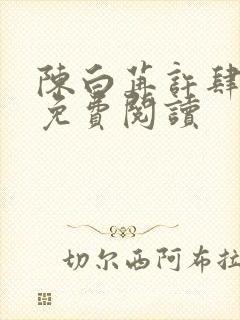 陳白苒許肆
免費閱讀
切尔西阿布拉